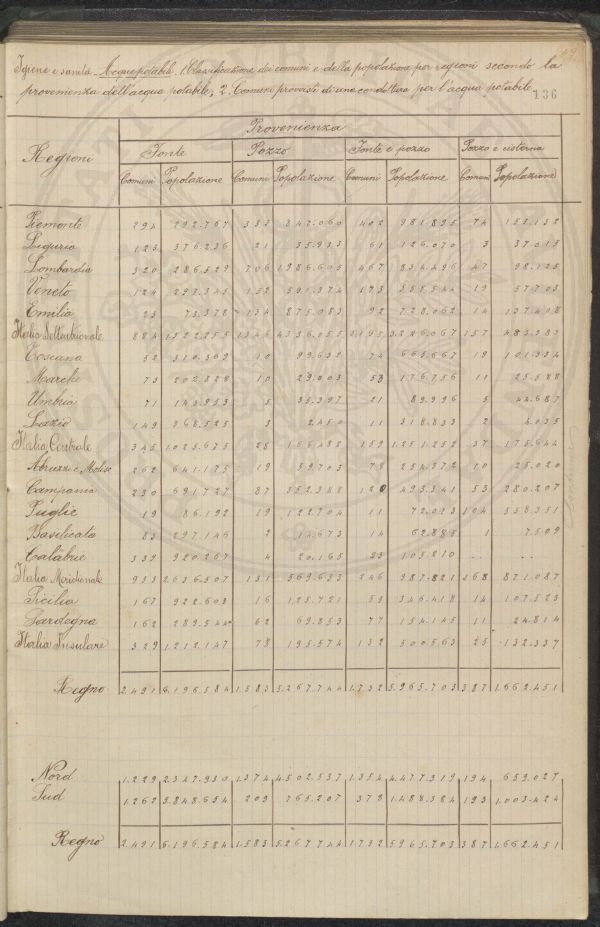 Igiene e sanità. Acque potabili. 1. Classificazione dei comuni e della popolazione per regioni secondo la
provenienza dell'acqua potabile; 2. Comuni provvisti di una conduttura per l'acqua potabile.
136
Provenienza
Regioni Fonte Pozzo Fonte e pozzo Pozzo e cisterna
Comuni Popolazione Comuni Popolazione Comuni Popolazione Comuni Popolazione
Piemonte 294 292.767 333 847.060 402 981.895 74 152.132
Liguria 123 376.236 21 35.933 61 126.070 3 37.015
Lombardia 320 286.529 706 1.986.605 467 834.496 47 98.125
Veneto 124 293.345 152 591.374 173 355.544 19 57.703
Emilia 23 73.378 134 875.083 92 728.062 14 137.408
Italia Settentrionale 884 1.322.255 1346 4.336.055 1.195 3.226.067 157 482.383
Toscana 52 310.369 10 99.632 74 665.667 19 101.334
Marche 73 202.828 10 29.003 53 176.756 11 25.588
Umbria 71 143.953 5 35.397 21 89.996 5 44.687
Lazio 149 368.525 3 2.450 11 318.833 2 4.035
Italia Centrale 345 1.025.675 28 166.482 159 1.251.252 37 175.644
Abruzzi e Molise 262 641.175 19 59.703 79 254.372 10 25.020
Campania 230 691.727 87 352.388 120 493.341 53 280.207
Puglie 19 86.192 19 122.704 11 72.013 104 558.351
Basilicata 83 297.146 2 14.673 14 62.885 1 7.509
Calabrie 339 920.267 4 20.165 23 105.210 . . . . .
Italia Meridionale 933 2.636.507 131 569.633 246 987.821 168 871.087
Sicilia 167 922.603 16 125.721 59 346.418 14 107.523
Sardegna 162 289.544 62 69.853 77 154.145 11 24.814
Italia Insulare 329 1.212.147 78 195.574 132 500.563 25 132.337
Regno 2.491 6.196.584 1.583 5.267.744 1.732 5.965.703 387 1.662.451
Nord 1.229 2.347.930 1.374 4.502.537 1.354 4.477.319 194 659.027
Sud 1.262 3.848.654 209 765.207 378 1.488.384 193 1.003.424
Regno 2.491 6.196.584 1.583 5.267.744 1.732 5.965.703 387 1.662.451